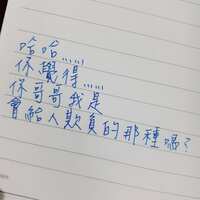 哈哈……
你覺得……
你哥哥我是
會給人欺負的那種嗎?